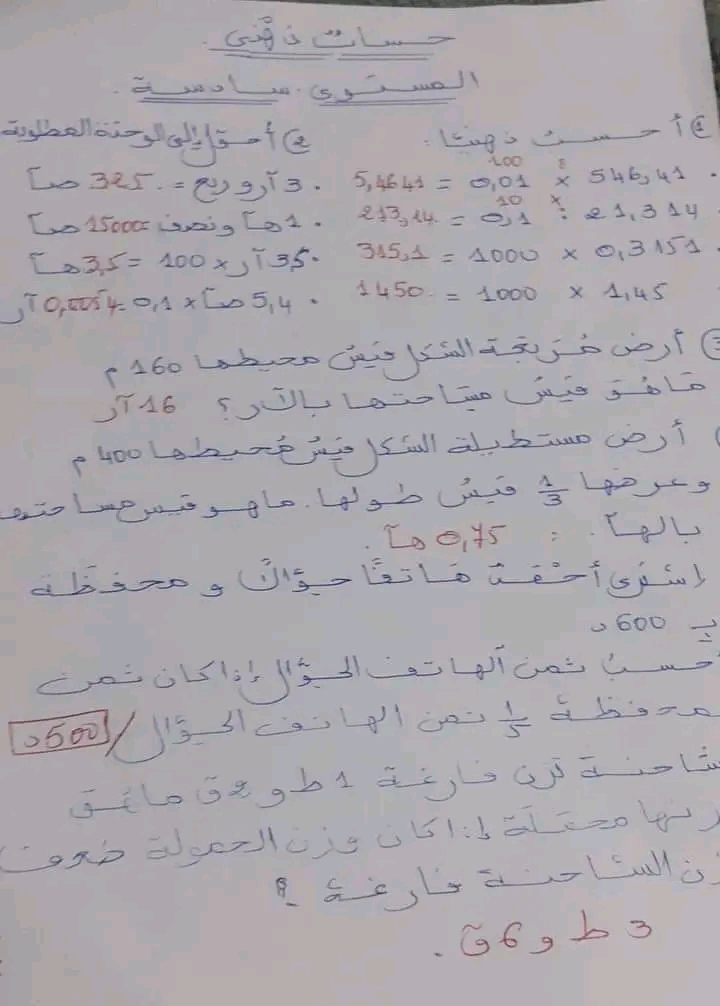 حساب ذهني.
المستوى. سادسة.
① أحسب ذهنيا:
100
546,41 × 0,01 = 5,4641
10 ×
21,314 : 0,1 = 213,14
0,3151 × 1000 = 315,1
1,45 × 1000 = 1450
② أحول إلى الوحدة المطلوبة
3 آر وربع = 325 صآ
1 هآ ونصف = 15000 صآ
35 آر × 100 = 3,5 هآ
5,4 صآ × 0,1 = 0,0054 آر
③ أرض مربعة الشكل قيس محيطها 160 م
ما هو قيس مساحتها بالآر؟ 16 آر
أرض مستطيلة الشكل قيس محيطها 400 م
وعرضها 1/3 قيس طولها. ما هو قيس مساحتها
بالهآ. : 0,75 هآ.
إشترى أحمد هاتفا جوّالا و محفظة
بـ 600 د
أحسب ثمن الهاتف الجوّال إذا كان ثمن
محفظة 1/5 ثمن الهاتف الجوّال / 500 د
شاحنة تزن فارغة 1 ط و 2 ق ما هو
زنها محمّلة إذا كان وزن الحمولة ضعف
زن الشاحنة فارغة ؟
3 ط و 6 ق.